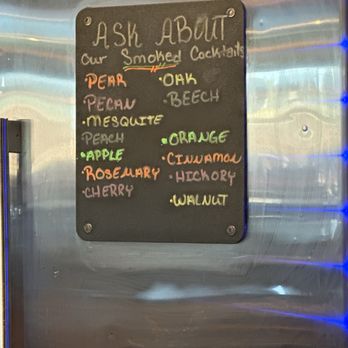 ASK ABOUT
Our Smoked Cocktails
·PEAR
PECAN
·MESQUITE
PEACH
·APPLE
·ROSEMARY
·CHERRY
·OAK
·BEECH
·ORANGE
·CINNAMON
·HICKORY
·WALNUT